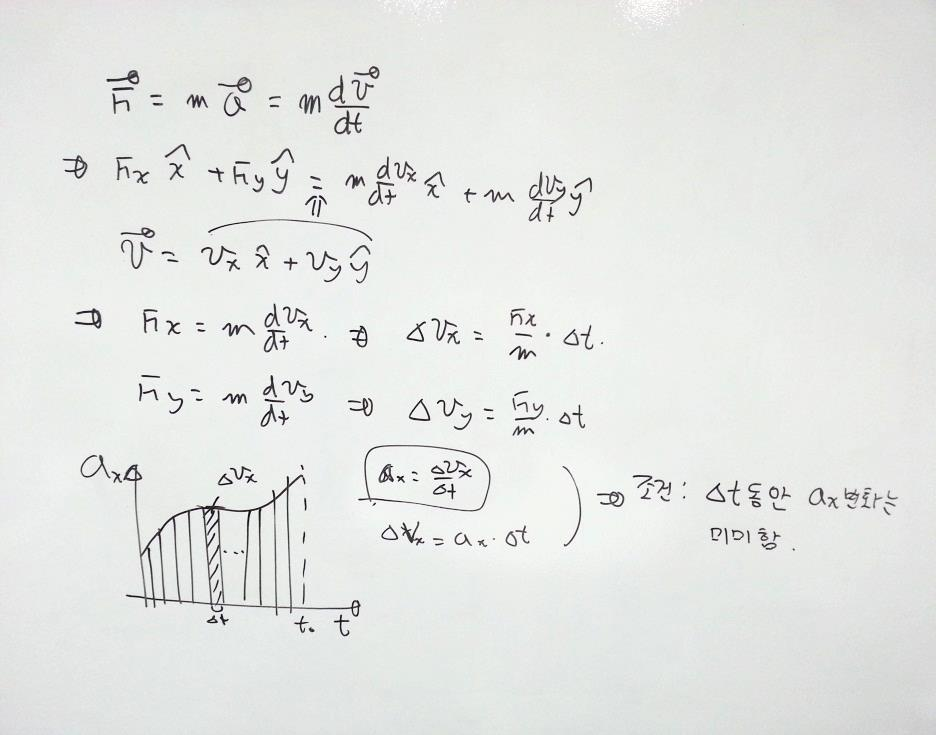 F⃗ = m a⃗ = m dv⃗/dt
⇒ Fx x̂ + Fy ŷ = m dvx/dt x̂ + m dvy/dt ŷ
⇑
v⃗ = vx x̂ + vy ŷ
⇒ Fx = m dvx/dt . ⇒ Δvx = Fx/m · Δt.
Fy = m dvy/dt ⇒ Δvy = Fy/m · Δt
ax Δvx
ax = Δvx/Δt
Δvx = ax · Δt
⇒ 조건: Δt동안 ax변화는
미미함.
...
Δt t₀ t